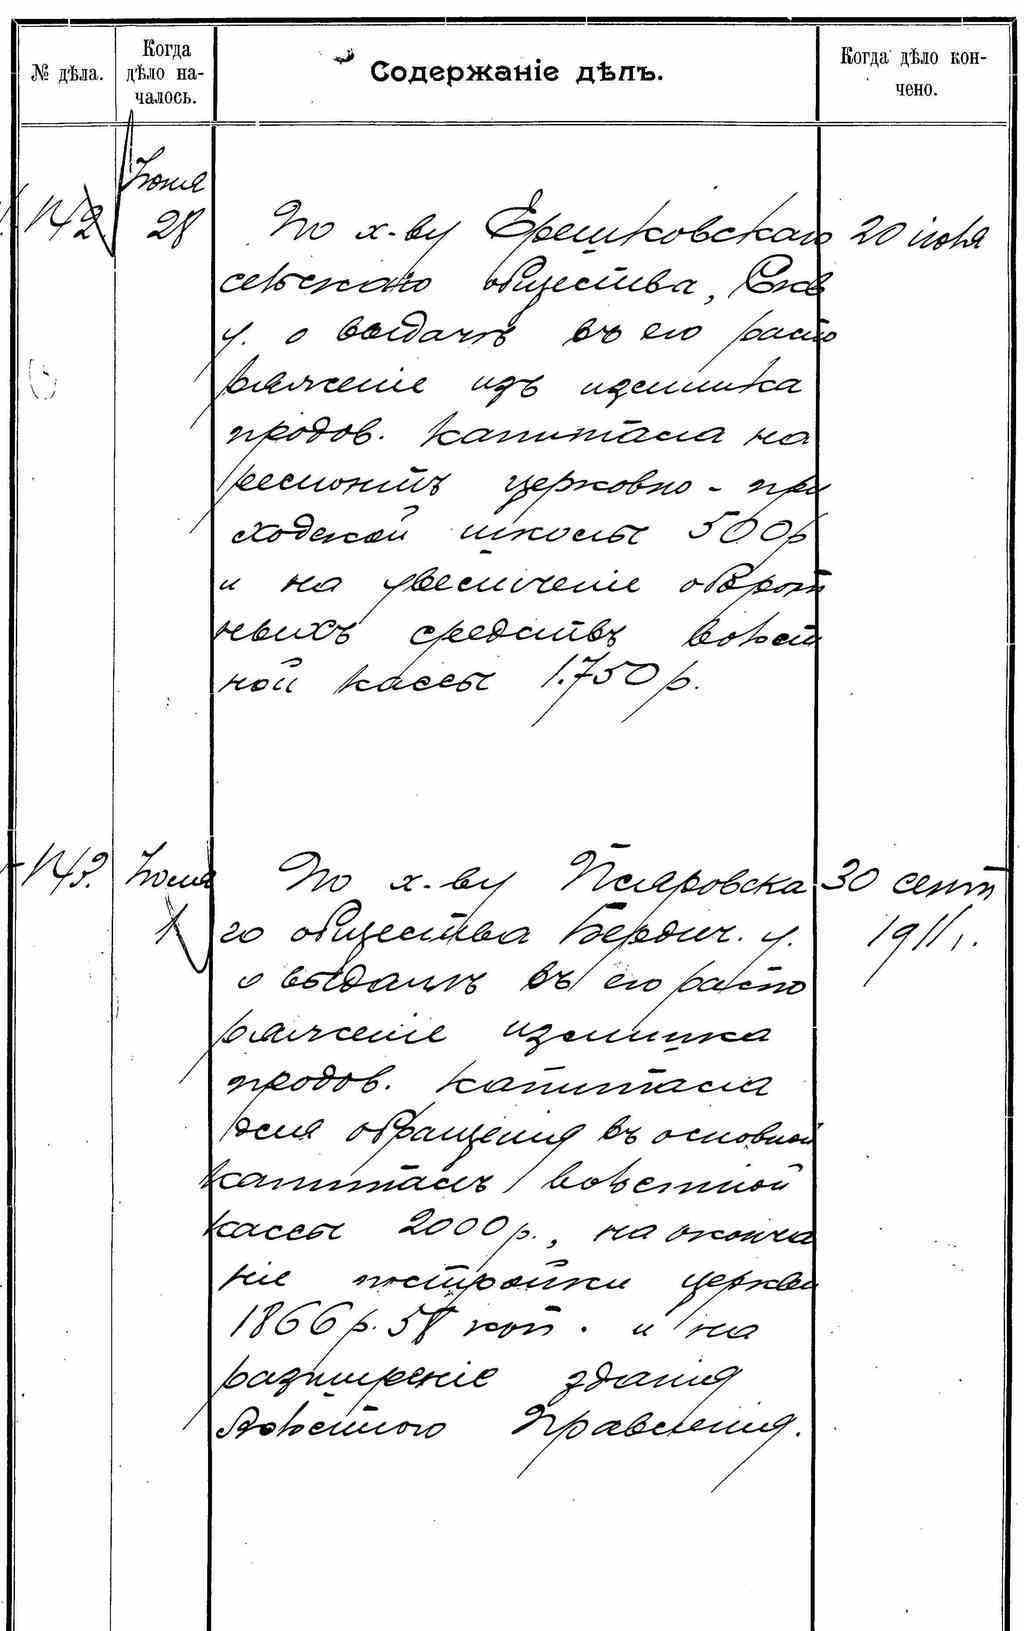 № дѣла.
Когда дѣло на-
чалось.
Содержаніе дѣлъ.
Когда дѣло кон-
чено.
Июня
142 28 По х-ву Ерешковскаго 20 іюля
сельскаго общества, Скв
у. о выдачѣ въ его распо
ряженіе изъ излишка
продов. капитала на
ремонтъ церковно-при
ходской школы 500 р
и на увеличеніе оборот
ныхъ средствъ волост
ной кассы 1.750 р.
143. Іюля По х-ву Пляровска 30 сент
1 го общества Бердич. у. 1911 г.
о выдачѣ въ его распо
ряженіе излишка
продов. капитала
для обращенія въ основной
капиталъ волостной
кассы 2000 р., на оконча
ніе постройки церкви
1866 р. 58 коп. и на
разширеніе зданія
Волостного Правленія.